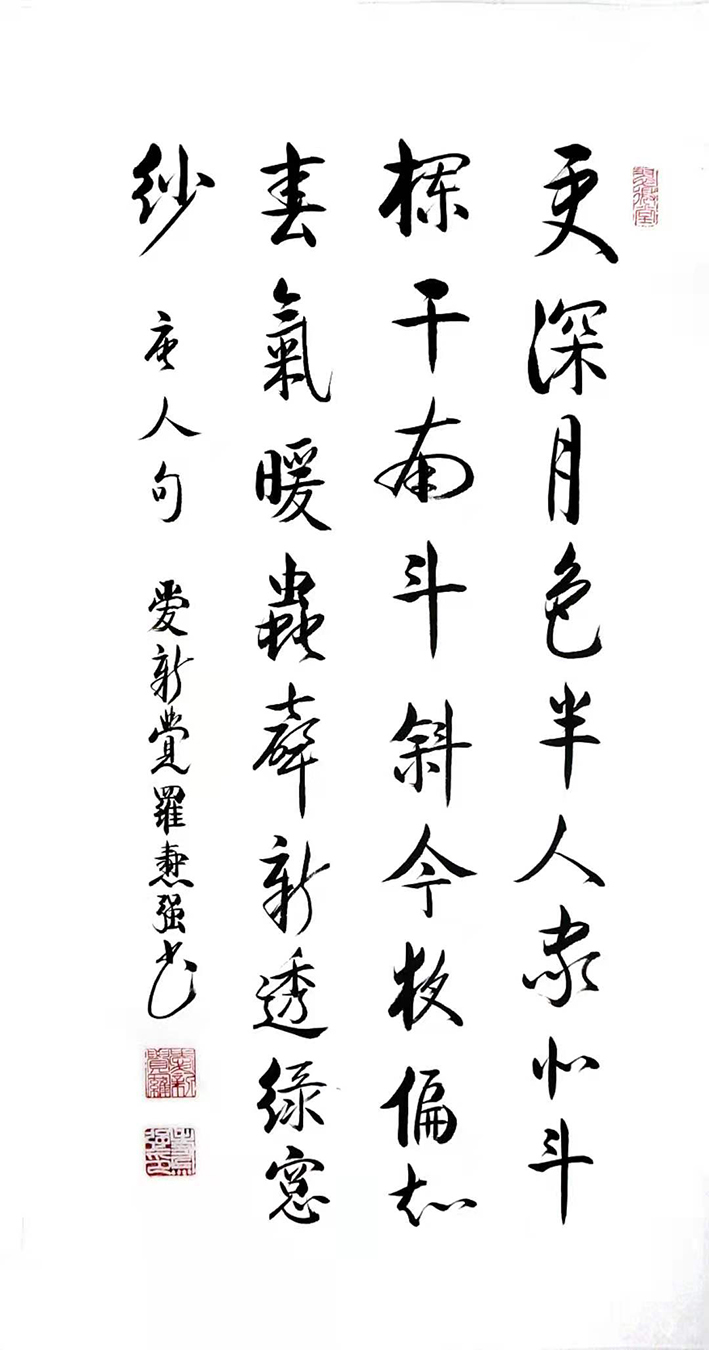 更深月色半人家北斗
欄干南斗斜今夜偏知
春氣暖蟲聲新透綠窓
紗 唐人句 愛新覺羅强书
愛新覺羅